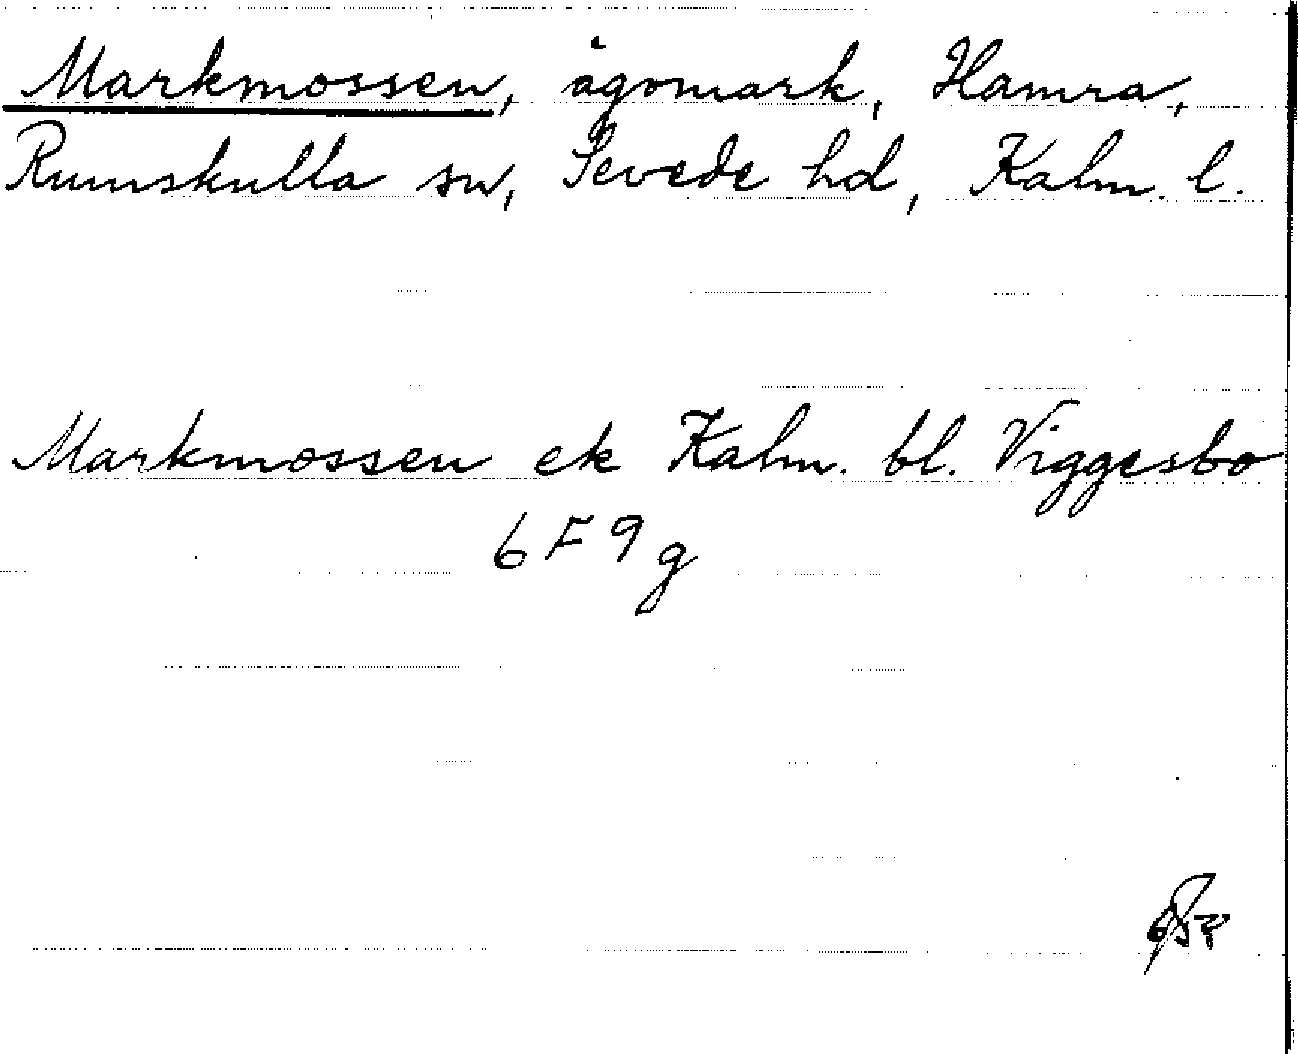 Markmossen, ägomark, Hamra,
Rumskulla sn, Sevede hd, Kalm. l.
Markmossen ek Kalm. bl. Viggesbo
6 F 9 g